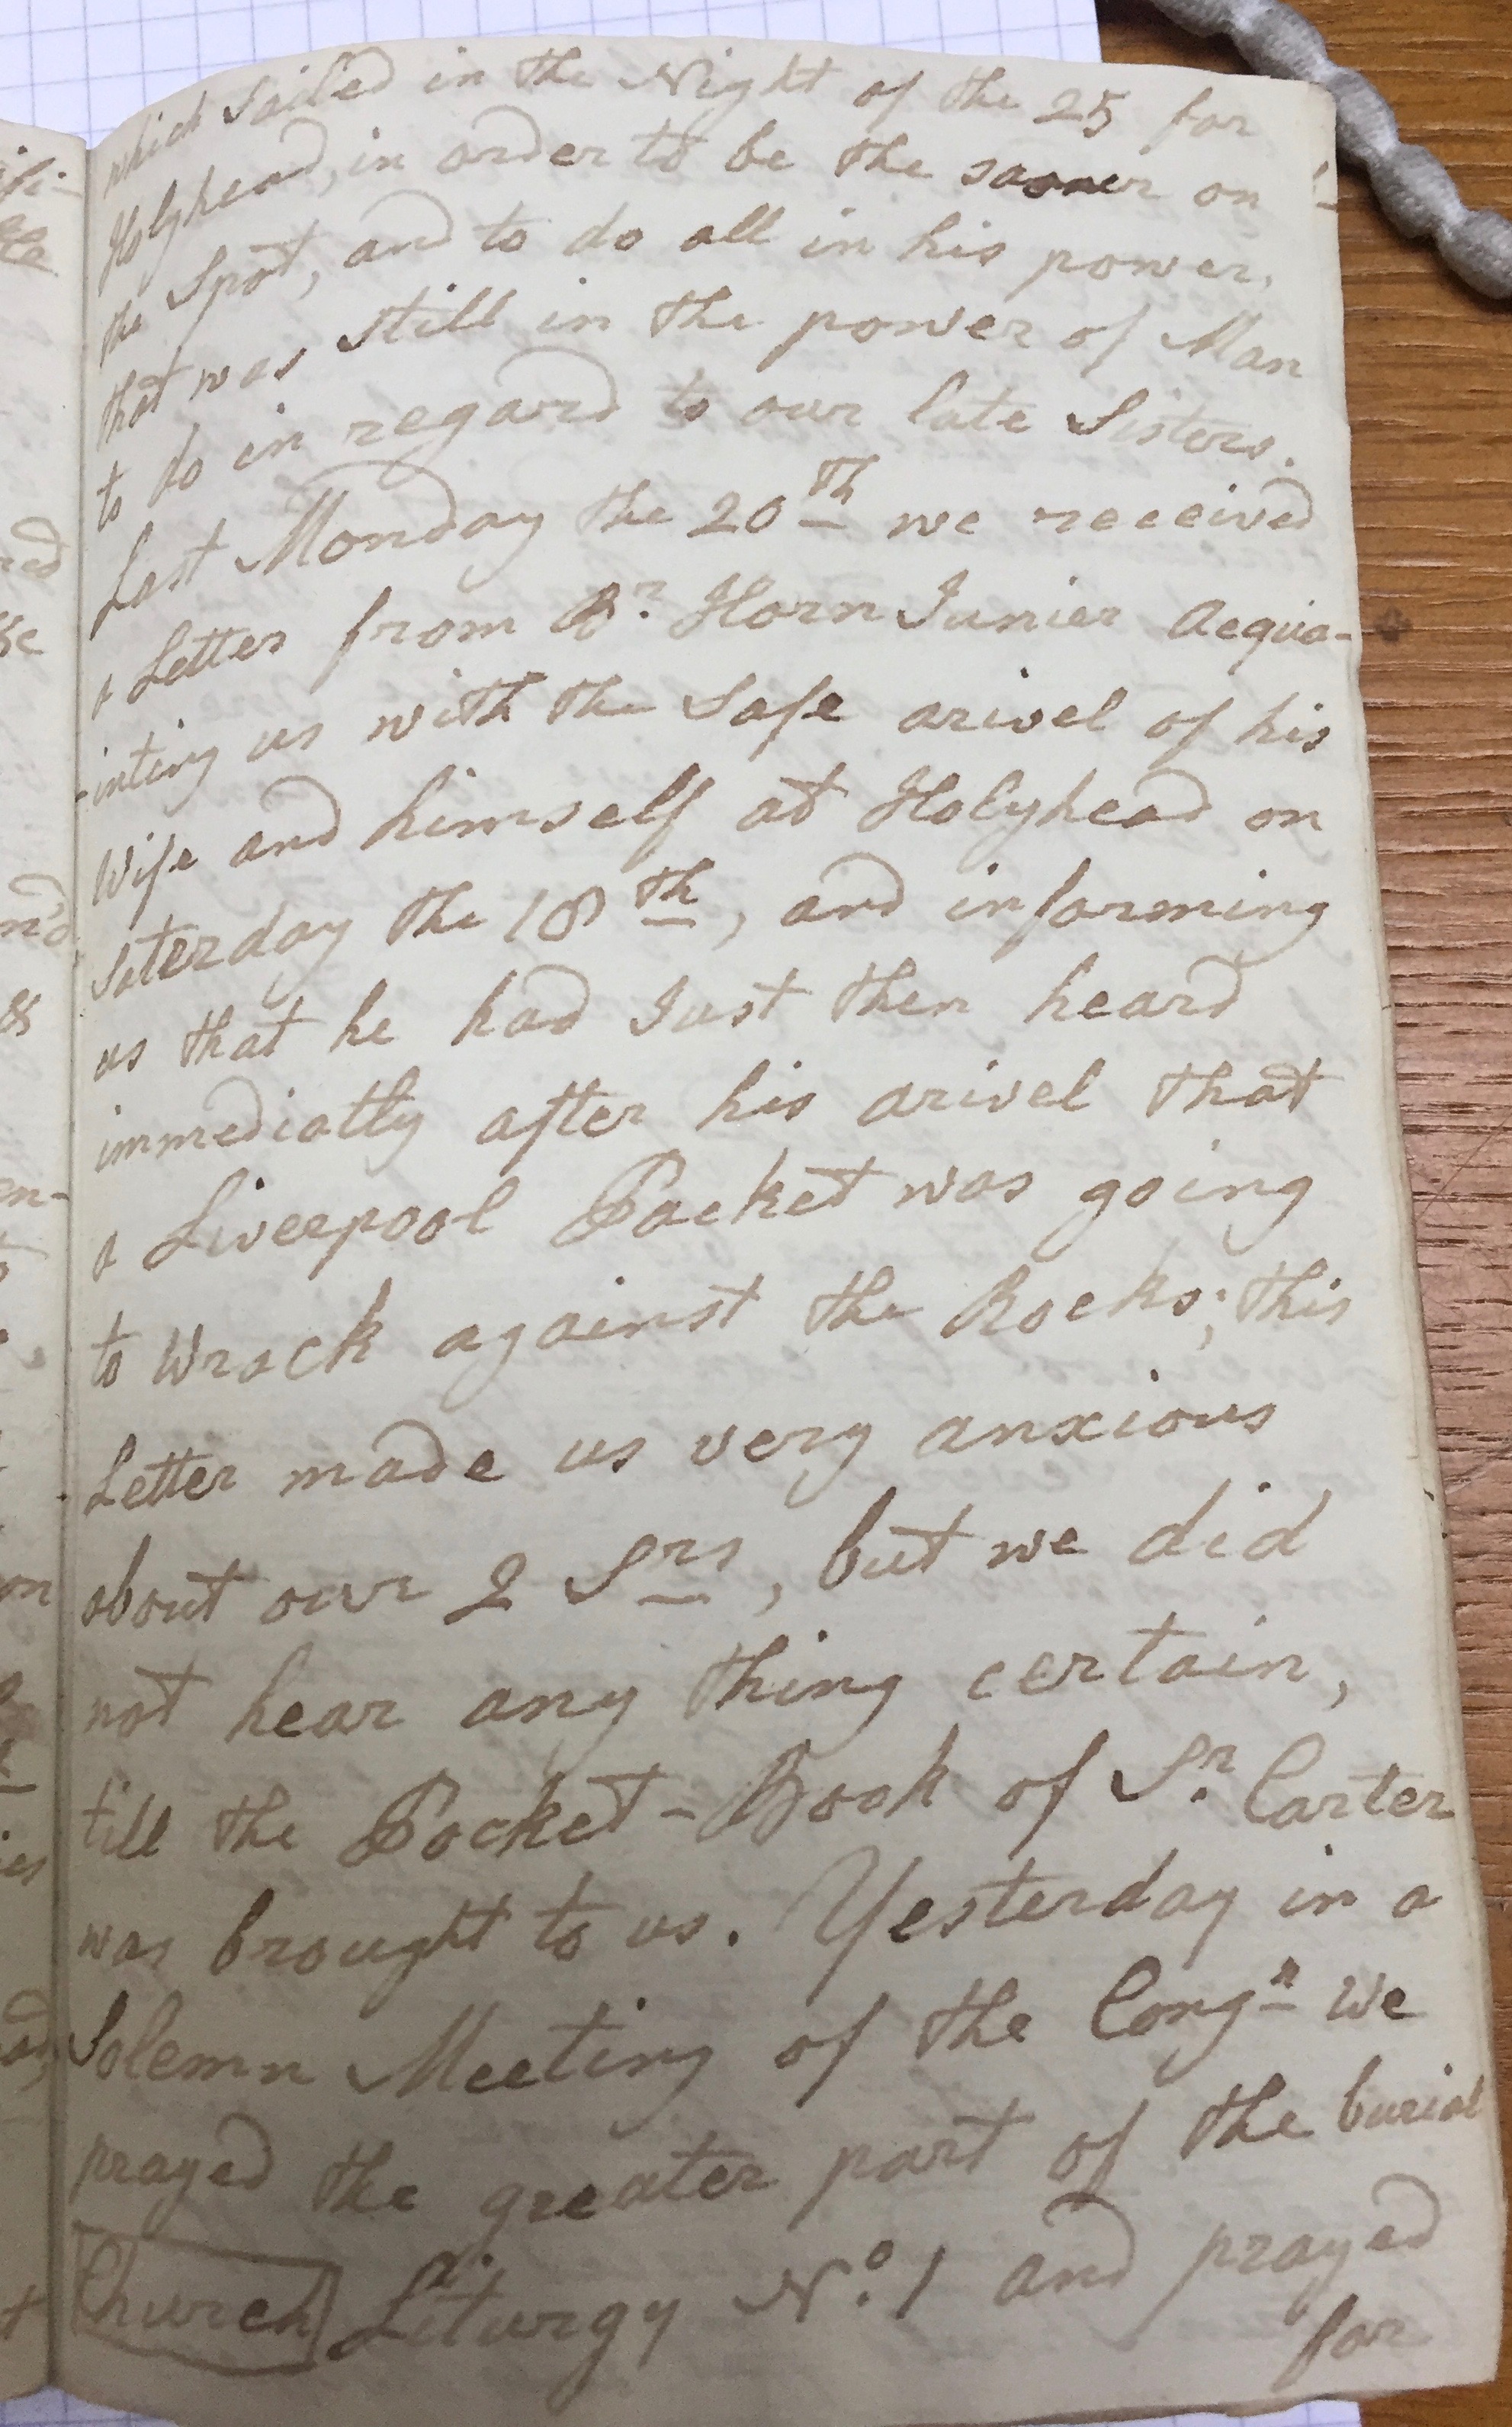 which Sailed in the Night of the 25 for
Holyhead, in order to be the sooner on
the Spot, and to do all in his power,
that was still in the power of Man
to do in regard to our late Sisters.
Last Monday the 20th we received
a Letter from Br. Horn Junier Acqua-
-inting us with the Safe arivel of his
Wife and himself at Holyhead on
Saterday the 18th, and informing
us that he had Just then heard
immediatly after his arivel that
a Liverpool Packet was going
to Wrack against the Rocks; this
Letter made us very anxious
about our 2 Srs, but we did
not hear any thing certain,
till the Pocket-Book of Sr. Carter
was brought to us. Yesterday in a
Solemn Meeting of the Congn we
prayed the greater part of the burial
Church Liturgy No. 1 and prayed
for